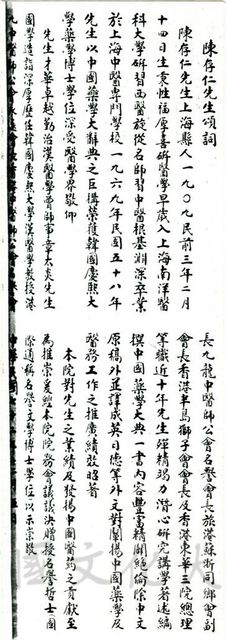 陳存仁先生頌詞
陳存仁先生上海縣人一九〇九民前三年二月
十四日生秉性福厚喜研醫學早歲入上海南洋醫
科大學研習西醫旋從名師習中醫根基淵深卒業
於上海中醫專門學校一九六九年民國五十八年
先生以中國藥學大辭典之巨構榮獲韓國慶熙大
學藥學博士學位深受醫學界敬仰
先生才華卓越勤治漢醫學曾師事章太炎先生
國學造詣深厚歷任韓國慶熙大學漢醫學教授港
長九龍中醫師公會名譽會長旅港蘇浙同鄉會副
會長香港半島獅子會會長及香港東華三院總理
等職近十年先生殫精竭力潛心研究講學著述編
撰中國藥學大典一書內容豐富精闢絕倫除中文
原稿外並譯成英日德等外文對闡揚中國藥學及
醫務工作之推廣績效昭著
本院對先生之業績及發揚中國醫藥之貢獻至
為推崇爰經本院院務會議議決贈授名譽哲士國
際通稱名譽文學博士學位以示崇敬